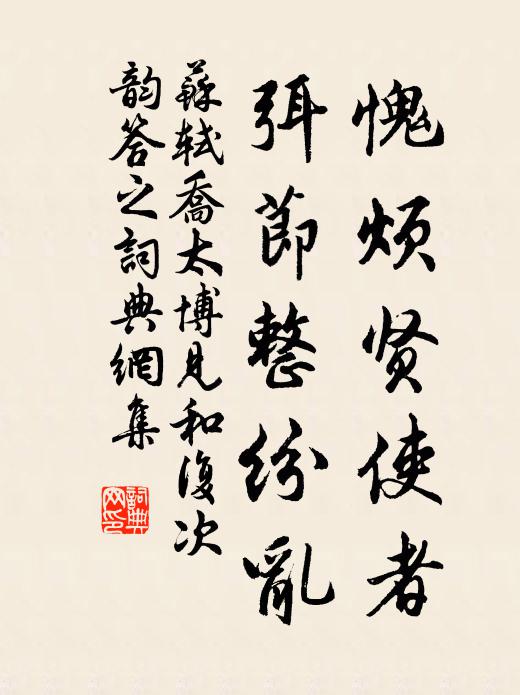 愧烦贤使者
弭節整纷亂
蘇軾喬太博見和復次
韵答之詞典網集
詞典网印